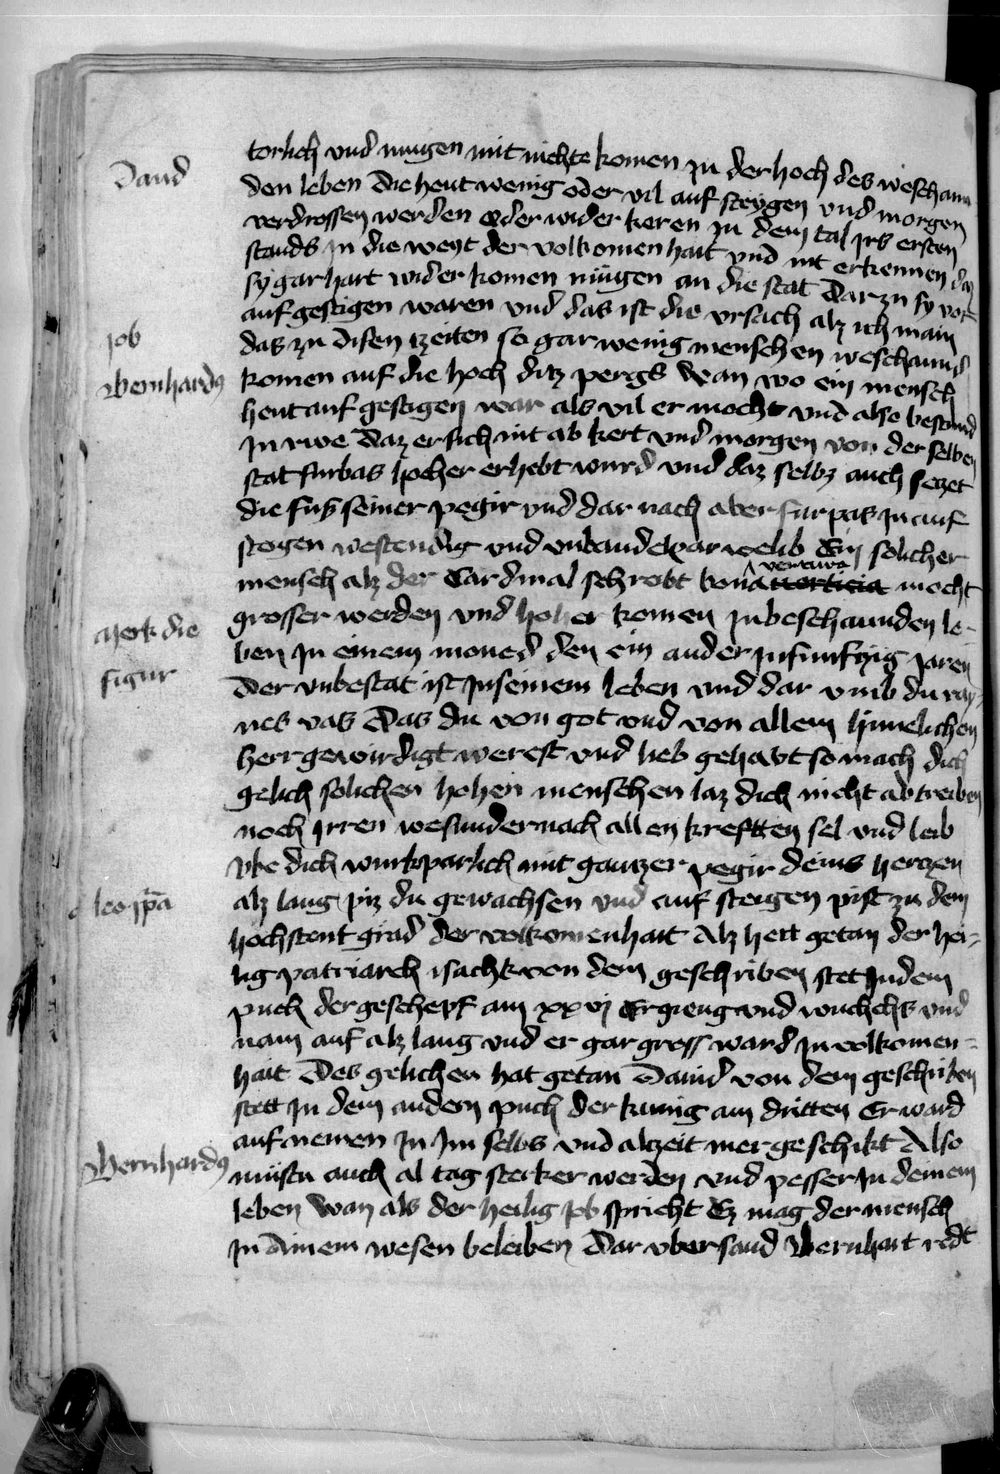 torlich vnd mugen mit nichte komen zu der hoch des weschaun
Dauid
den leben die heut wenig oder vil auf steygen vnd morgen
verdrossen werden oder wider keren zu dem tal jrs ersten
stands in die weyt der volkomenhait vnd nit erkennen daz
sy gar hart wider komen mügen an die stat dar zu sy vor
auf gestigen waren vnd das ist die vrsach alz ich main
das zu disen zeiten so gar wenig menschen weschaund
job
komen auf die hoch ditz pergs wan wo ein mensch
Bernhardus
heut auf gestigen war als vil er mocht vnd also bestund
in rwe daz er sich nit ab kert vnd morgen von der selben
stat furbas hocher erhebt wurd vnd daz selbz auch setzet
die fuß seiner pegir vnd dar nach aber furpas in auf
steigen westendig vnd vnbandelpar welib Ein solicher
mensch alz der Cardinal schreibt bona ventura mocht
grosser werden vnd hoher komen in beschaunden le-
Merk die
ben in einem moned den ein ander in funfzig jaren
figur
der vnbestat ist in seinem leben vnd dar vmb du ray-
nes vas das du von got vnd von allem himelichen
herr gewirdigt werest vnd lieb gehabt so mach dich
gelich solichen hohen menschen laz dich nicht abtreiben
noch irren wesunder nach allen krefften sel vnd leib
vbe dich wurkparlich mit gantzer pegir deins hertzen
alz lang piz du gewachsen vnd auf steigen pist zu dem
hochstent grad der volkomenhait Alz hett getan der hei-
lig patriarch isachk von dem geschriben stet in dem
puch der geschepf am xxvj Er gieng vnd wuchchs vnd
nam auf alz lang vnd er gar gross ward in volkomen-
hait Des gelichen hat getan Dauid von dem geschriben
stett in dem andern puch der kunig am dritten Er ward
auf nemen in im selbs vnd alzeit mer geschikt Also
Bernhardus
mustu auch al tag sterker werden vnd pesser in deinem
leben Wan als der heilig job spricht Ez mag der mensch
in ainem wesen beleiben Dar vber sand Bernhart redt